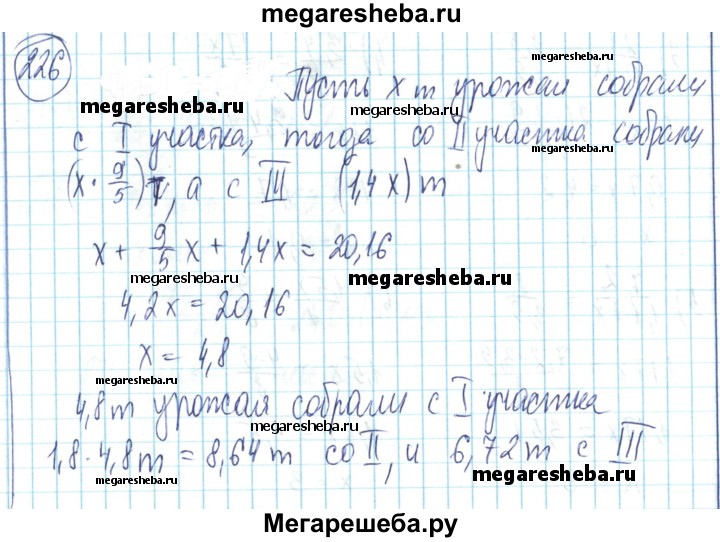 megaresheba.ru
226
megaresheba.ru
Пусть x т урожая собрали
megaresheba.ru
с I участка, тогда со II участка собрали
megaresheba.ru
(x · 9/5) т, а с III (1,4x) т
x + 9/5 x + 1,4x = 20,16
megaresheba.ru
megaresheba.ru
4,2x = 20,16
x = 4,8
megaresheba.ru
4,8 т урожая собрали с I участка
megaresheba.ru
1,8 · 4,8 т = 8,64 т со II, и 6,72 т с III
megaresheba.ru
Мегарешеба.ру